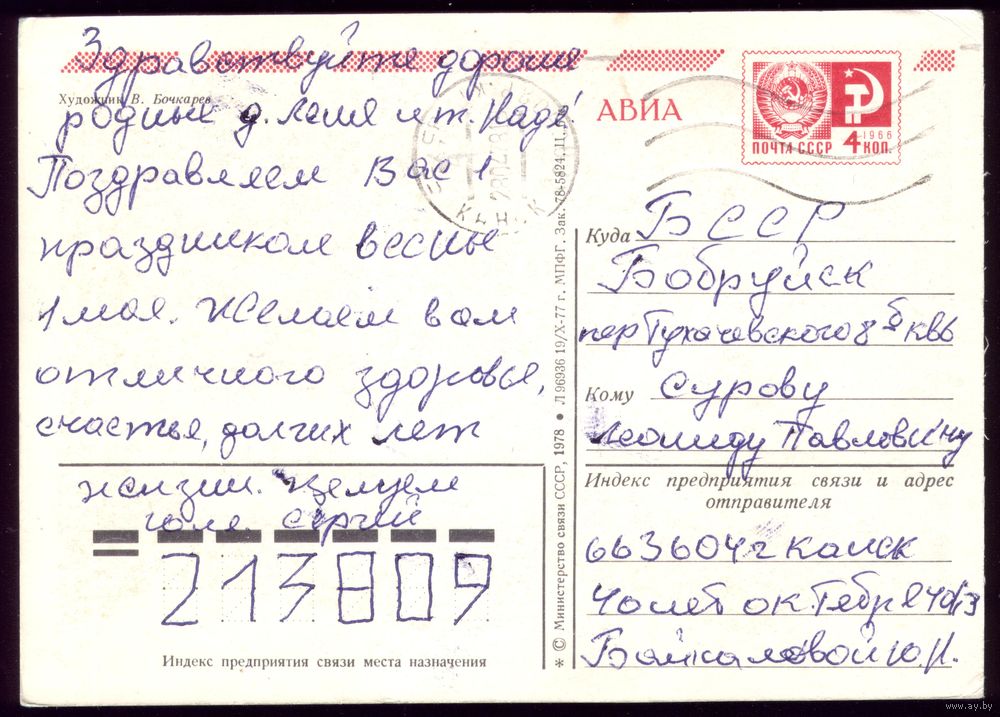 Здравствуйте дорогие
Художник В. Бочкарев
родные д. Лёня и т. Надя!
Поздравляем Вас с
праздником весны
1 мая. Желаем вам
отличного здоровья,
счастья, долгих лет
жизни. Целуем
Юля. Сергей
213809
Индекс предприятия связи места назначения
* © Министерство связи СССР, 1978 • Л 96936 19/X-77 г., МПФГ. Зак. 78-5824. 11.
АВИА
ПОЧТА СССР 1966 4 КОП.
КАНСК
Куда БССР
Бобруйск
пер Тухачевского 8 Б кв 6
Кому Сурову
Леониду Павловичу
Индекс предприятия связи и адрес
отправителя
663604 г Канск
40 лет октября
Байкаловой Ю.Н.
www.ay.by